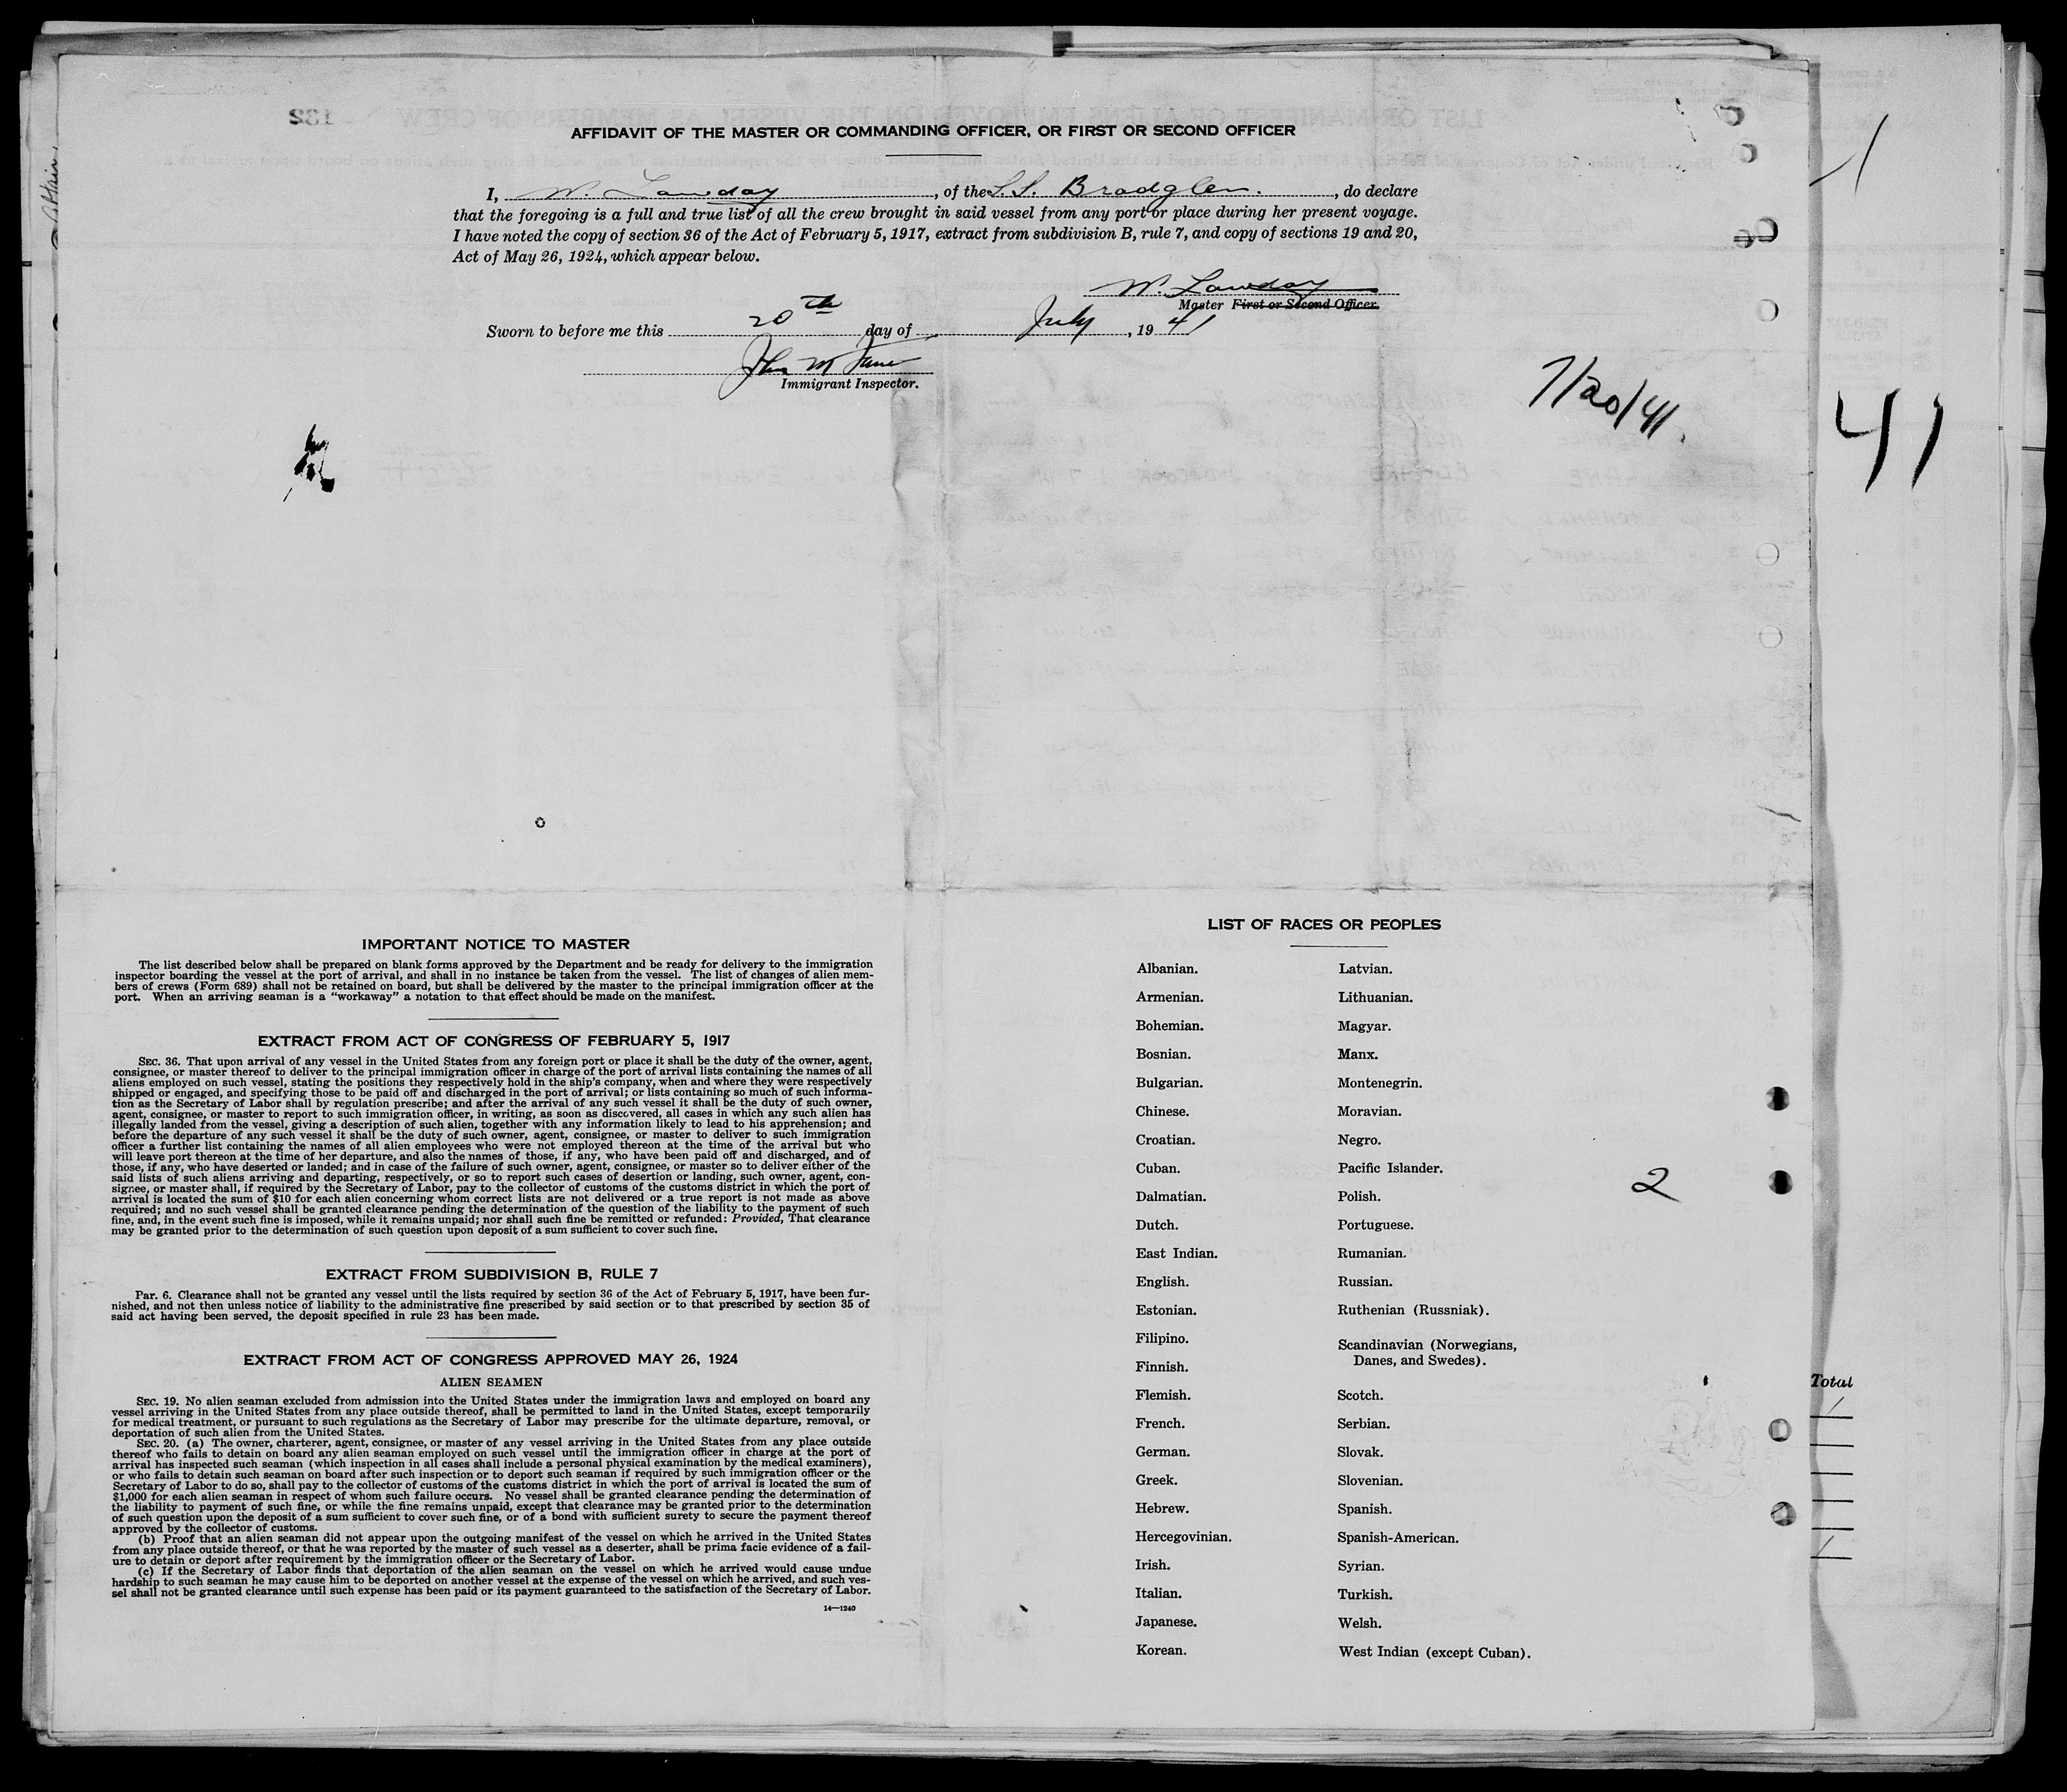 AFFIDAVIT OF THE MASTER OR COMMANDING OFFICER, OR FIRST OR SECOND OFFICER
I, W. Lawday, of the S.S. Bradglen., do declare
that the foregoing is a full and true list of all the crew brought in said vessel from any port or place during her present voyage.
I have noted the copy of section 36 of the Act of February 5, 1917, extract from subdivision B, rule 7, and copy of sections 19 and 20,
Act of May 26, 1924, which appear below.
W. Lawday
Master First or Second Officer.
Sworn to before me this 20th day of July, 1941
Immigrant Inspector.
7/20/41.
41
IMPORTANT NOTICE TO MASTER
The list described below shall be prepared on blank forms approved by the Department and be ready for delivery to the immigration
inspector boarding the vessel at the port of arrival, and shall in no instance be taken from the vessel. The list of changes of alien mem-
bers of crews (Form 689) shall not be retained on board, but shall be delivered by the master to the principal immigration officer at the
port. When an arriving seaman is a "workaway" a notation to that effect should be made on the manifest.
EXTRACT FROM ACT OF CONGRESS OF FEBRUARY 5, 1917
SEC. 36. That upon arrival of any vessel in the United States from any foreign port or place it shall be the duty of the owner, agent,
consignee, or master thereof to deliver to the principal immigration officer in charge of the port of arrival lists containing the names of all
aliens employed on such vessel, stating the positions they respectively hold in the ship's company, when and where they were respectively
shipped or engaged, and specifying those to be paid off and discharged in the port of arrival; or lists containing so much of such informa-
tion as the Secretary of Labor shall by regulation prescribe; and after the arrival of any such vessel it shall be the duty of such owner,
agent, consignee, or master to report to such immigration officer, in writing, as soon as discovered, all cases in which any such alien has
illegally landed from the vessel, giving a description of such alien, together with any information likely to lead to his apprehension; and
before the departure of any such vessel it shall be the duty of such owner, agent, consignee, or master to deliver to such immigration
officer a further list containing the names of all alien employees who were not employed thereon at the time of the arrival but who
will leave port thereon at the time of her departure, and also the names of those, if any, who have been paid off and discharged, and of
those, if any, who have deserted or landed; and in case of the failure of such owner, agent, consignee, or master so to deliver either of the
said lists of such aliens arriving and departing, respectively, or so to report such cases of desertion or landing, such owner, agent, con-
signee, or master shall, if required by the Secretary of Labor, pay to the collector of customs of the customs district in which the port of
arrival is located the sum of $10 for each alien concerning whom correct lists are not delivered or a true report is not made as above
required; and no such vessel shall be granted clearance pending the determination of the question of the liability to the payment of such
fine, and, in the event such fine is imposed, while it remains unpaid; nor shall such fine be remitted or refunded: Provided, That clearance
may be granted prior to the determination of such question upon deposit of a sum sufficient to cover such fine.
EXTRACT FROM SUBDIVISION B, RULE 7
Par. 6. Clearance shall not be granted any vessel until the lists required by section 36 of the Act of February 5, 1917, have been fur-
nished, and not then unless notice of liability to the administrative fine prescribed by said section or to that prescribed by section 35 of
said act having been served, the deposit specified in rule 23 has been made.
EXTRACT FROM ACT OF CONGRESS APPROVED MAY 26, 1924
ALIEN SEAMEN
SEC. 19. No alien seaman excluded from admission into the United States under the immigration laws and employed on board any
vessel arriving in the United States from any place outside thereof, shall be permitted to land in the United States, except temporarily
for medical treatment, or pursuant to such regulations as the Secretary of Labor may prescribe for the ultimate departure, removal, or
deportation of such alien from the United States.
SEC. 20. (a) The owner, charterer, agent, consignee, or master of any vessel arriving in the United States from any place outside
thereof who fails to detain on board any alien seaman employed on such vessel until the immigration officer in charge at the port of
arrival has inspected such seaman (which inspection in all cases shall include a personal physical examination by the medical examiners),
or who fails to detain such seaman on board after such inspection or to deport such seaman if required by such immigration officer or the
Secretary of Labor to do so, shall pay to the collector of customs of the customs district in which the port of arrival is located the sum of
$1,000 for each alien seaman in respect of whom such failure occurs. No vessel shall be granted clearance pending the determination of
the liability to payment of such fine, or while the fine remains unpaid, except that clearance may be granted prior to the determination
of such question upon the deposit of a sum sufficient to cover such fine, or of a bond with sufficient surety to secure the payment thereof
approved by the collector of customs.
(b) Proof that an alien seaman did not appear upon the outgoing manifest of the vessel on which he arrived in the United States
from any place outside thereof, or that he was reported by the master of such vessel as a deserter, shall be prima facie evidence of a fail-
ure to detain or deport after requirement by the immigration officer or the Secretary of Labor.
(c) If the Secretary of Labor finds that deportation of the alien seaman on the vessel on which he arrived would cause undue
hardship to such seaman he may cause him to be deported on another vessel at the expense of the vessel on which he arrived, and such ves-
sel shall not be granted clearance until such expense has been paid or its payment guaranteed to the satisfaction of the Secretary of Labor.
14—1240
LIST OF RACES OR PEOPLES
Albanian.
Armenian.
Bohemian.
Bosnian.
Bulgarian.
Chinese.
Croatian.
Cuban.
Dalmatian.
Dutch.
East Indian.
English.
Estonian.
Filipino.
Finnish.
Flemish.
French.
German.
Greek.
Hebrew.
Hercegovinian.
Irish.
Italian.
Japanese.
Korean.
Latvian.
Lithuanian.
Magyar.
Manx.
Montenegrin.
Moravian.
Negro.
Pacific Islander.
Polish.
Portuguese.
Rumanian.
Russian.
Ruthenian (Russniak).
Scandinavian (Norwegians,
Danes, and Swedes).
Scotch.
Serbian.
Slovak.
Slovenian.
Spanish.
Spanish-American.
Syrian.
Turkish.
Welsh.
West Indian (except Cuban).
2
Total